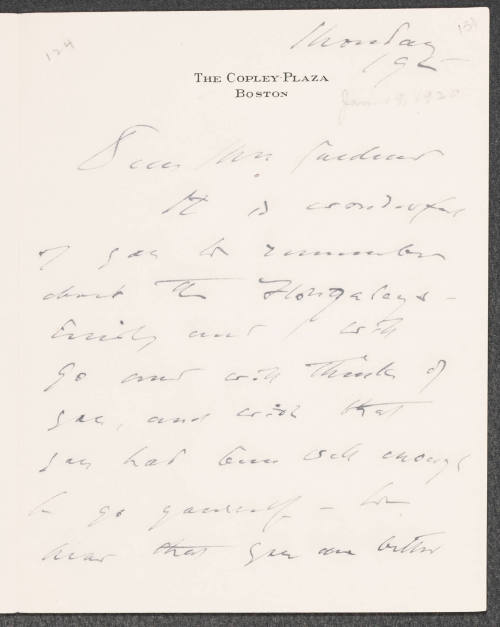 124
131
Monday
THE COPLEY-PLAZA
BOSTON
192-
Jan. 1920
Dear Mrs. Gardner
It is wonderful
of you to remember
about the Flonzaleys -
Emily and I will
go and will think of
you, and wish that
you had been well enough
to go yourself - We
hear that you are better